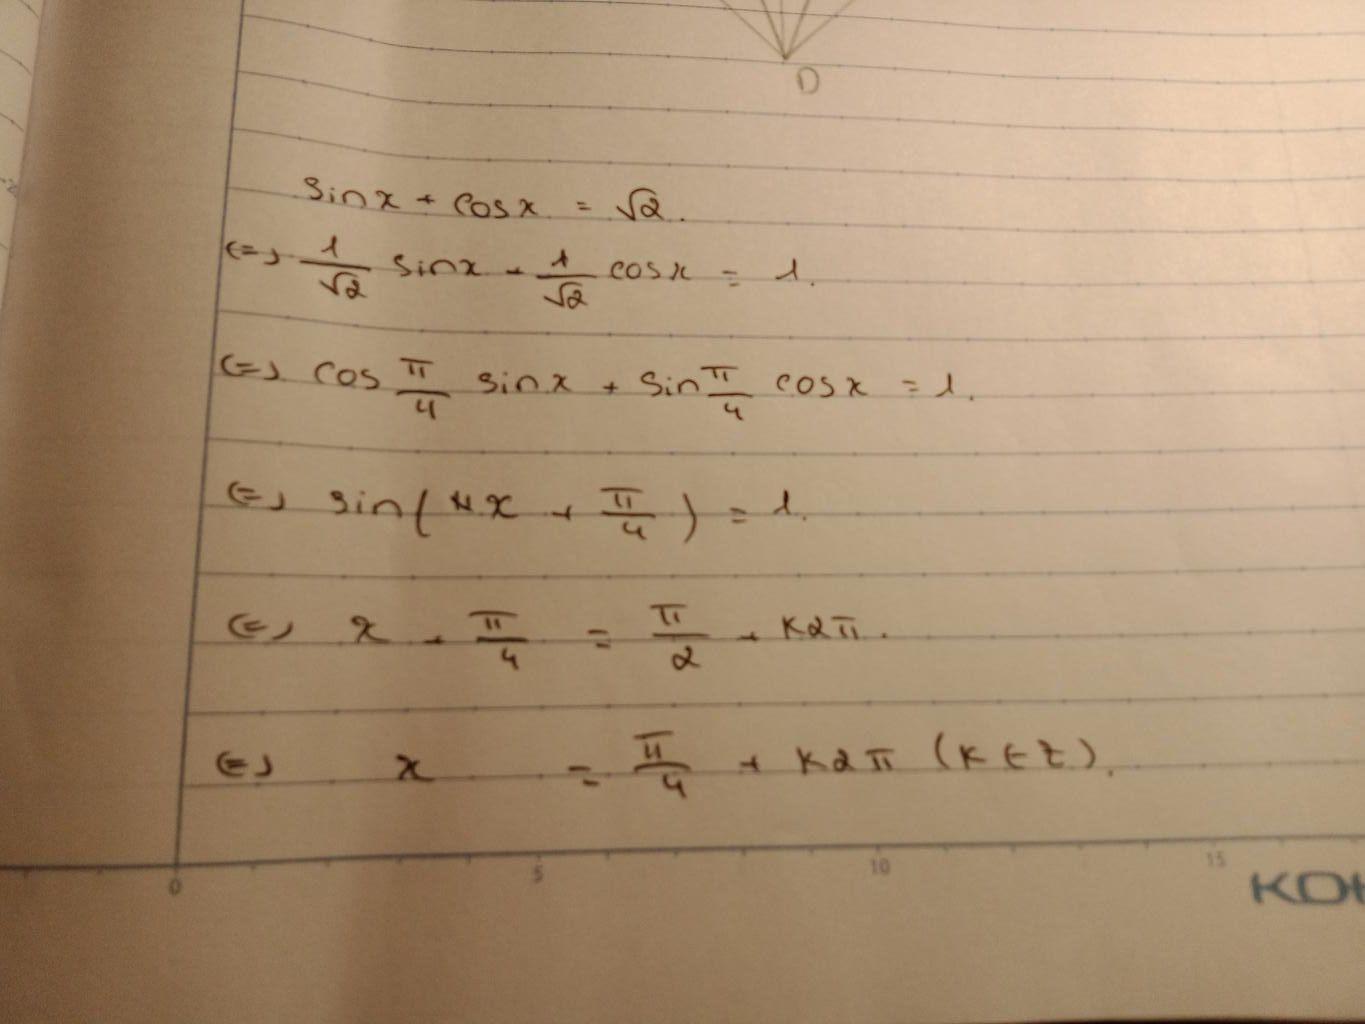 D
sinx + cosx = √2.
(=) 1/√2 sinx + 1/√2 cosx = 1.
(=) cos π/4 sinx + sin π/4 cosx = 1.
(=) sin( x + π/4 ) = 1.
(=) x + π/4 = π/2 + k2π.
(=) x = π/4 + k2π (k ∈ Z).
0 5 10 15